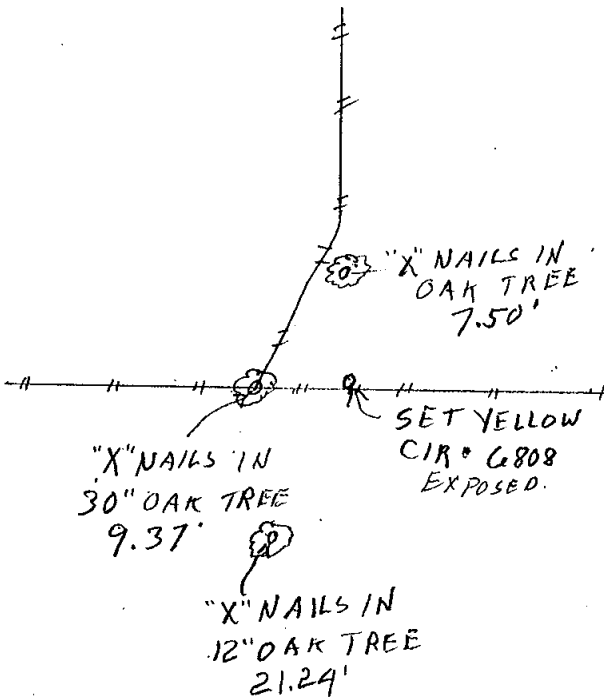 "X" NAILS IN
OAK TREE
7.50'
SET YELLOW
CIR• 6808
EXPOSED.
"X" NAILS IN
30" OAK TREE
9.37'
"X" NAILS IN
12" OAK TREE
21.24'